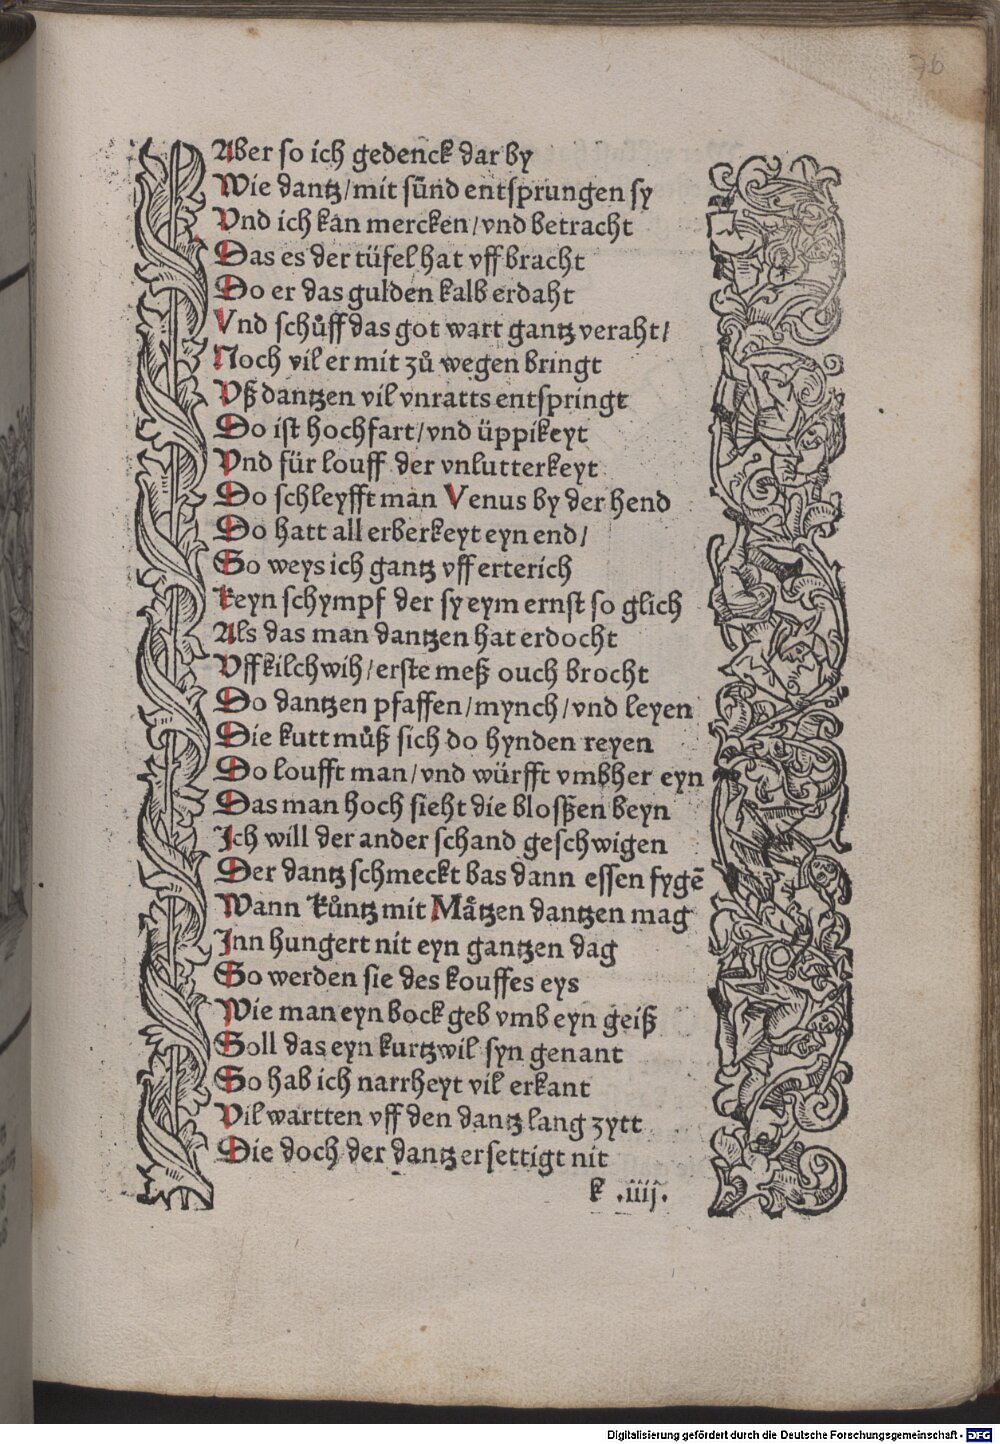 76
Aber so ich gedenck dar by
Wie dantz/mit sünd entsprungen sy
Vnd ich kan mercken/vnd betracht
Das es der tüfel hat vff bracht
Do er das gulden kalb erdaht
Vnd schůff das got wart gantz veraht/
Noch vil er mit zů wegen bringt
Vß dantzen vil vnratts entspringt
Do ist hochfart/vnd üppikeyt
Vnd für louff der vnlutterkeyt
Do schleyfft man Venus by der hend
Do hatt all erberkeyt eyn end/
So weys ich gantz vff erterich
Keyn schympf der sy eym ernst so glich
Als das man dantzen hat erdocht
Vff kilchwih/erste meß ouch brocht
Do dantzen pfaffen/mynch/vnd leyen
Die kutt můß sich do hynden reyen
Do loufft man/vnd würfft vmbher eyn
Das man hoch sieht die bloßen beyn
Ich will der ander schand geschwigen
Der dantz schmeckt bas dann essen fygẽ
Wann Kůntz mit Mätzen dantzen mag
Inn hungert nit eyn gantzen dag
So werden sie des kouffes eys
Wie man eyn bock geb vmb eyn geiß
Soll das eyn kurtzwil syn genant
So hab ich narrheyt vil erkant
Vil wartten vff den dantz lang zytt
Die doch der dantz ersettigt nit
k .iiij.
Digitalisierung gefördert durch die Deutsche Forschungsgemeinschaft - DFG